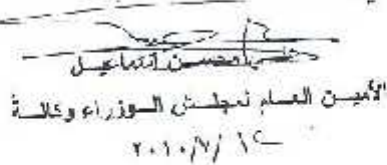 علي محسن إسماعيل
الأمين العام لمجلس الوزراء وكالة
٢٠١٠/٧/١٤